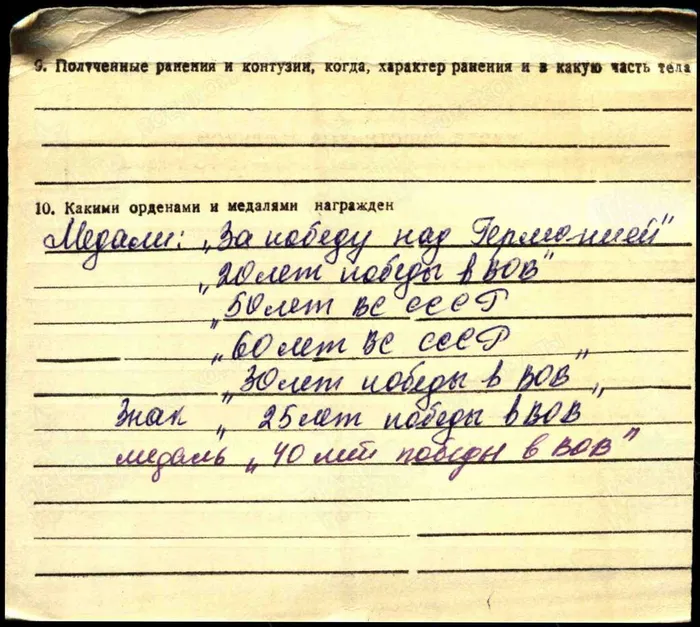 9. Полученные ранения и контузии, когда, характер ранения и в какую часть тела
10. Какими орденами и медалями награжден
Медали: „За победу над Германией"
„20 лет победы в ВОВ"
„50 лет ВС СССР
„60 лет ВС СССР
„30 лет победы в ВОВ"
Знак „25 лет победы в ВОВ"
медаль „40 лет победы в ВОВ"